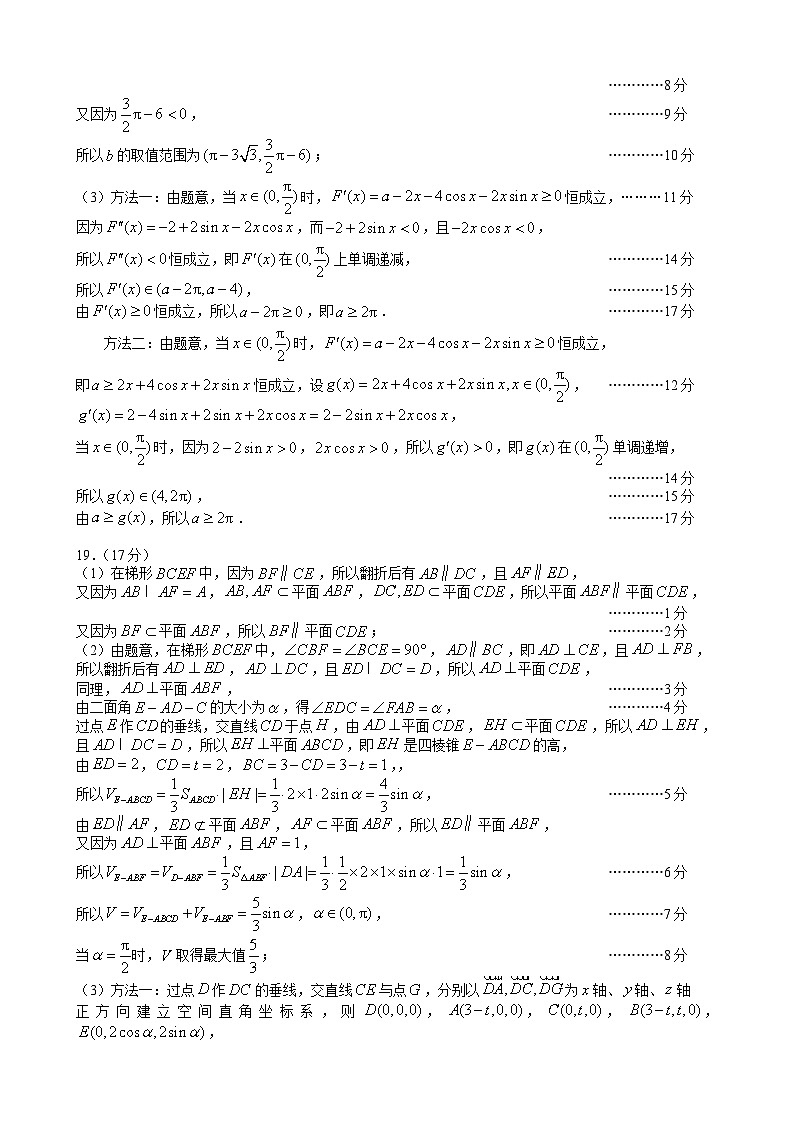 …………8分
又因为 3/2 π−6<0， …………9分
所以b的取值范围为(π−3√3, 3/2 π−6)； …………10分
（3）方法一：由题意，当x∈(0, π/2)时，F′(x)=a−2x−4cos x−2xsin x≥0恒成立，………11分
因为F″(x)=−2+2sin x−2xcos x，而−2+2sin x<0，且−2xcos x<0，
所以F″(x)<0恒成立，即F′(x)在(0, π/2)上单调递减， …………14分
所以F′(x)∈(a−2π,a−4)， …………15分
由F′(x)≥0恒成立，所以a−2π≥0，即a≥2π． …………17分
方法二：由题意，当x∈(0, π/2)时，F′(x)=a−2x−4cos x−2xsin x≥0恒成立，
即a≥2x+4cos x+2xsin x恒成立，设g(x)=2x+4cos x+2xsin x,x∈(0, π/2)， …………12分
g′(x)=2−4sin x+2sin x+2xcos x=2−2sin x+2xcos x，
当x∈(0, π/2)时，因为2−2sin x>0，2xcos x>0，所以g′(x)>0，即g(x)在(0, π/2)单调递增，
…………14分
所以g(x)∈(4,2π)， …………15分
由a≥g(x)，所以a≥2π． …………17分
19.（17分）
（1）在梯形BCEF中，因为BF∥CE，所以翻折后有AB∥DC，且AF∥ED，
又因为AB∣AF=A，AB,AF⊂平面ABF，DC,ED⊂平面CDE，所以平面ABF∥平面CDE，
…………1分
又因为BF⊂平面ABF，所以BF∥平面CDE； …………2分
（2）由题意，在梯形BCEF中，∠CBF=∠BCE=90°，AD∥BC，即AD⊥CE，且AD⊥FB，
所以翻折后有AD⊥ED，AD⊥DC，且ED∣DC=D，所以AD⊥平面CDE，
同理，AD⊥平面ABF， …………3分
由二面角E−AD−C的大小为α，得∠EDC=∠FAB=α， …………4分
过点E作CD的垂线，交直线CD于点H，由AD⊥平面CDE，EH⊂平面CDE，所以AD⊥EH，
且AD∣DC=D，所以EH⊥平面ABCD，即EH是四棱锥E−ABCD的高，
由ED=2，CD=t=2，BC=3−CD=3−t=1,，
所以V_{E−ABCD}=1/3 S_{ABCD}·|EH|=1/3·2×1·2sin α=4/3 sin α， …………5分
由ED∥AF，ED⊄平面ABF，AF⊂平面ABF，所以ED∥平面ABF，
又因为AD⊥平面ABF，且AF=1，
所以V_{E−ABF}=V_{D−ABF}=1/3 S_{△ABF}·|DA|=1/3·1/2×2×1×sin α·1=1/3 sin α， …………6分
所以V=V_{E−ABCD}+V_{E−ABF}=5/3 sin α，α∈(0,π)， …………7分
当α=π/2时，V取得最大值5/3； …………8分
（3）方法一：过点D作DC的垂线，交直线CE与点G，分别以DA,DC,DG为x轴、y轴、z轴
正方向建立空间直角坐标系，则D(0,0,0)，A(3−t,0,0)，C(0,t,0)，B(3−t,t,0)，
E(0,2cos α,2sin α)，